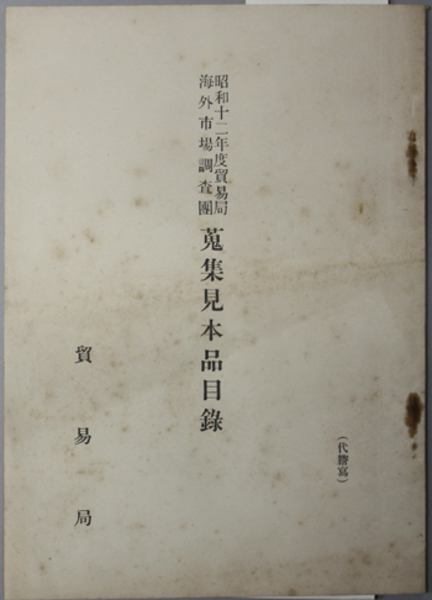 （代謄寫）
昭和十二年度貿易局
海外市場調査團
蒐集見本品目錄
貿易局